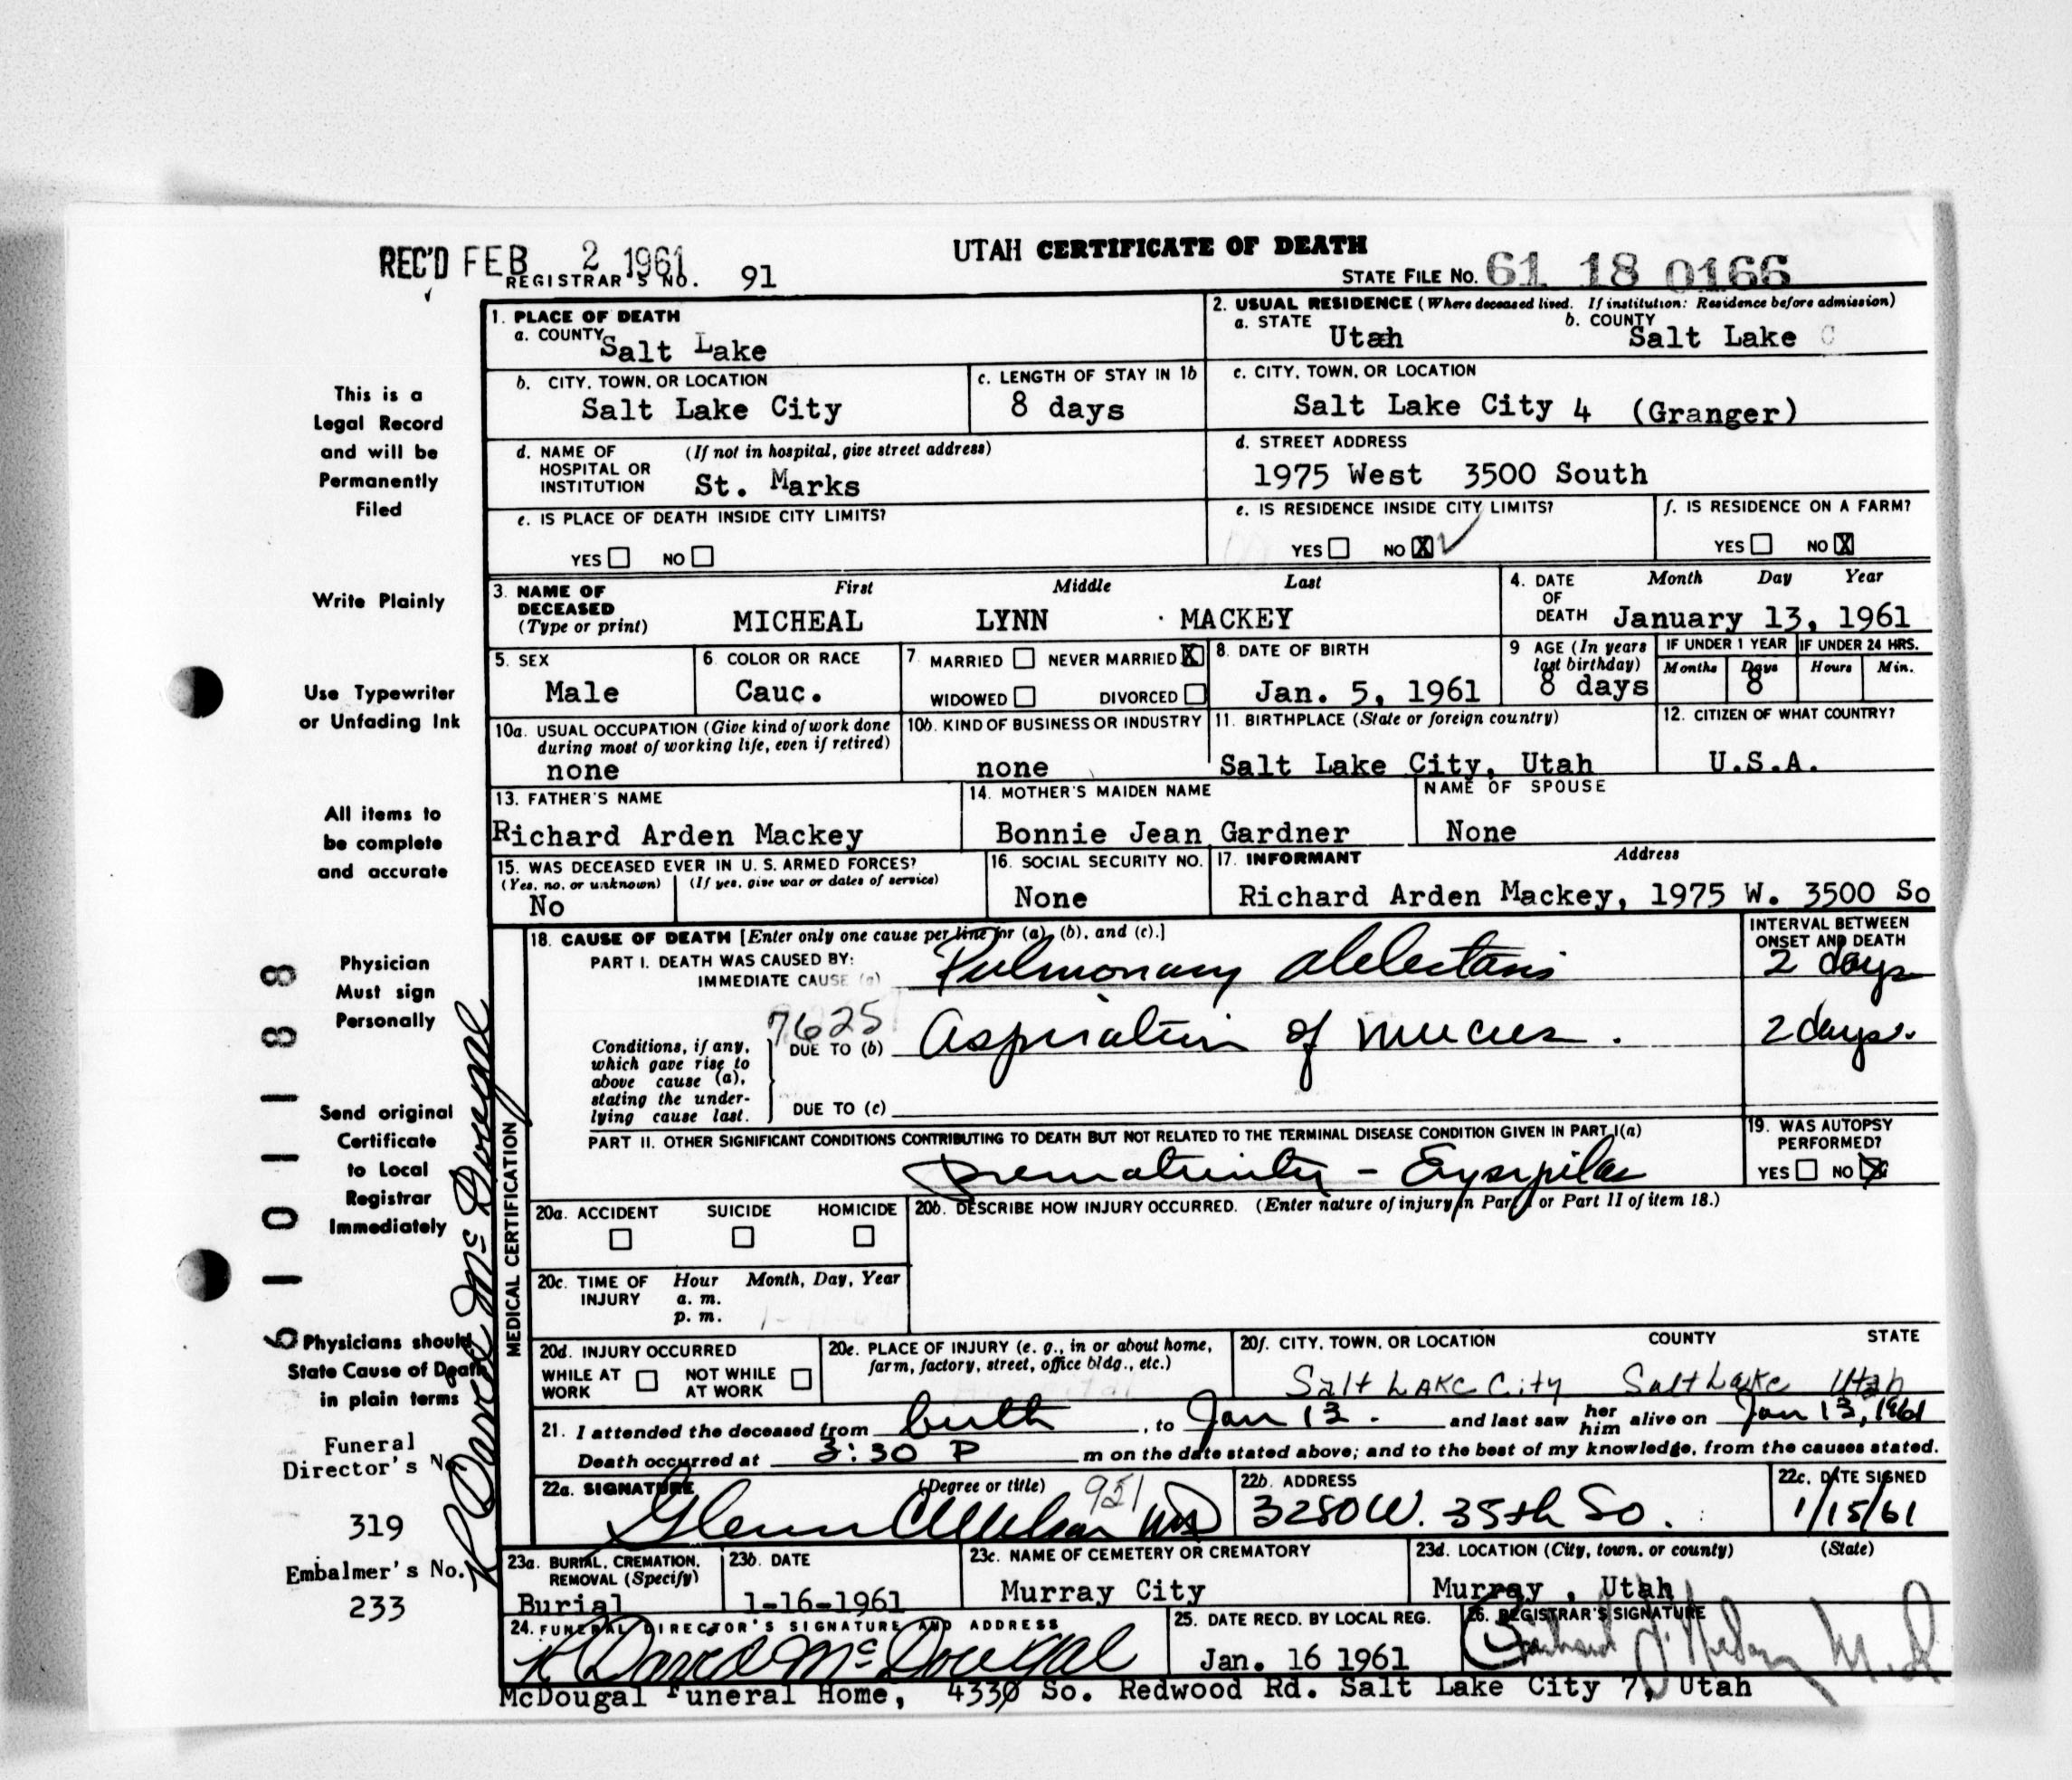 REC'D FEB 2 1961
UTAH CERTIFICATE OF DEATH
REGISTRAR'S NO. 91
STATE FILE NO. 61 18 0166
1. PLACE OF DEATH
a. COUNTY Salt Lake
2. USUAL RESIDENCE (Where deceased lived. If institution: Residence before admission)
a. STATE Utah b. COUNTY Salt Lake
b. CITY, TOWN, OR LOCATION Salt Lake City
c. LENGTH OF STAY IN 1b 8 days
c. CITY, TOWN, OR LOCATION Salt Lake City 4 (Granger)
d. NAME OF HOSPITAL OR INSTITUTION (If not in hospital, give street address) St. Marks
d. STREET ADDRESS 1975 West 3500 South
e. IS PLACE OF DEATH INSIDE CITY LIMITS?
YES NO
e. IS RESIDENCE INSIDE CITY LIMITS?
YES NO X
f. IS RESIDENCE ON A FARM?
YES NO X
3. NAME OF DECEASED (Type or print)
First Middle Last
MICHEAL LYNN MACKEY
4. DATE OF DEATH Month Day Year
January 13, 1961
5. SEX Male
6. COLOR OR RACE Cauc.
7. MARRIED NEVER MARRIED X
WIDOWED DIVORCED
8. DATE OF BIRTH Jan. 5, 1961
9 AGE (In years last birthday) 8 days
IF UNDER 1 YEAR Months Days 8
IF UNDER 24 HRS. Hours Min.
10a. USUAL OCCUPATION (Give kind of work done during most of working life, even if retired) none
10b. KIND OF BUSINESS OR INDUSTRY none
11. BIRTHPLACE (State or foreign country) Salt Lake City, Utah
12. CITIZEN OF WHAT COUNTRY? U.S.A.
13. FATHER'S NAME Richard Arden Mackey
14. MOTHER'S MAIDEN NAME Bonnie Jean Gardner
NAME OF SPOUSE None
15. WAS DECEASED EVER IN U. S. ARMED FORCES?
(Yes, no, or unknown) (If yes, give war or dates of service)
No
16. SOCIAL SECURITY NO. None
17. INFORMANT Address
Richard Arden Mackey, 1975 W. 3500 So
18. CAUSE OF DEATH [Enter only one cause per line for (a), (b), and (c).]
INTERVAL BETWEEN ONSET AND DEATH
PART I. DEATH WAS CAUSED BY:
IMMEDIATE CAUSE (a) Pulmonary atelectasis 2 days
7625
Conditions, if any, which gave rise to above cause (a), stating the underlying cause last.
DUE TO (b) Aspiration of mucus. 2 days.
DUE TO (c)
PART II. OTHER SIGNIFICANT CONDITIONS CONTRIBUTING TO DEATH BUT NOT RELATED TO THE TERMINAL DISEASE CONDITION GIVEN IN PART I(a)
Prematurity - Erysipilas
19. WAS AUTOPSY PERFORMED?
YES NO X
20a. ACCIDENT SUICIDE HOMICIDE
20b. DESCRIBE HOW INJURY OCCURRED. (Enter nature of injury in Part I or Part II of item 18.)
20c. TIME OF INJURY Hour Month, Day, Year
a. m.
p. m.
20d. INJURY OCCURRED
WHILE AT WORK NOT WHILE AT WORK
20e. PLACE OF INJURY (e. g., in or about home, farm, factory, street, office bldg., etc.)
20f. CITY, TOWN, OR LOCATION COUNTY STATE
Salt LAKE City Salt Lake Utah
21. I attended the deceased from birth, to Jan 13. and last saw her him alive on Jan 13, 1961
Death occurred at 3:30 P m on the date stated above; and to the best of my knowledge, from the causes stated.
22a. SIGNATURE (Degree or title) 951
Glenn MD
22b. ADDRESS 3280 W. 35th So.
22c. DATE SIGNED 1/15/61
23a. BURIAL, CREMATION, REMOVAL (Specify) Burial
23b. DATE 1-16-1961
23c. NAME OF CEMETERY OR CREMATORY Murray City
23d. LOCATION (City, town, or county) (State)
Murray, Utah
24. FUNERAL DIRECTOR'S SIGNATURE AND ADDRESS
R David McDougal
25. DATE RECD. BY LOCAL REG. Jan. 16 1961
26. REGISTRAR'S SIGNATURE
M.D.
McDougal Funeral Home, 4330 So. Redwood Rd. Salt Lake City 7, Utah
MEDICAL CERTIFICATION
This is a
Legal Record
and will be
Permanently
Filed
Write Plainly
Use Typewriter
or Unfading Ink
All items to
be complete
and accurate
Physician
Must sign
Personally
Send original
Certificate
to Local
Registrar
Immediately
Physicians should
State Cause of Death
in plain terms
Funeral
Director's No
319
Embalmer's No.
233
R David McDougal
6101188